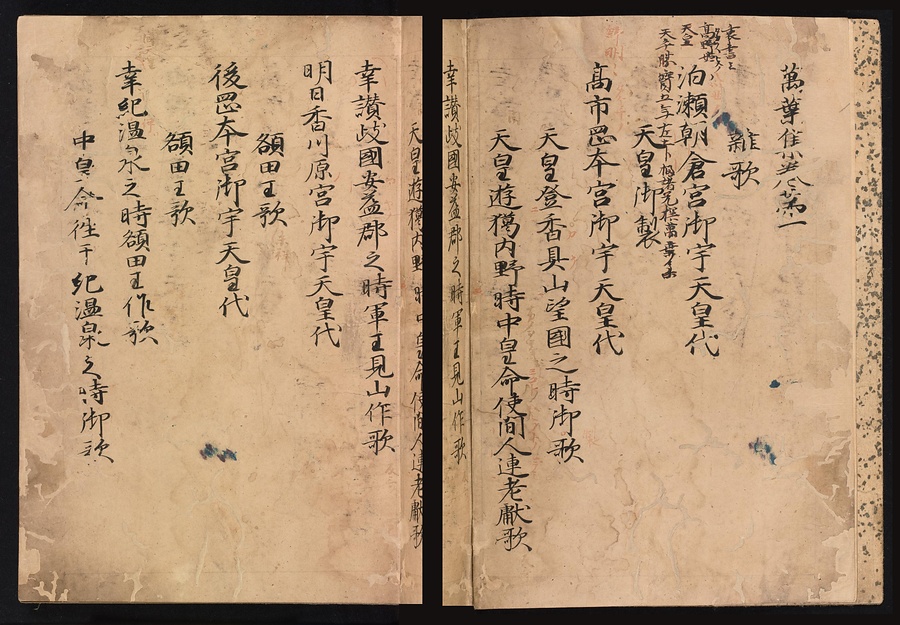 萬葉集巻第一
雜歌
泊瀬朝倉宮御宇天皇代
天皇御製
高市罡本宮御宇天皇代
天皇登香具山望國之時御歌
天皇遊獦内野時中皇命使間人連老獻歌
幸讃岐國安益郡之時軍王見山作歌
天皇遊獦内野時中皇命使間人連老獻歌
幸讃岐國安益郡之時軍王見山作歌
明日香川原宮御宇天皇代
額田王歌
後罡本宮御宇天皇代
額田王歌
幸紀温泉之時額田王作歌
中皇命徃于紀温泉之時御歌